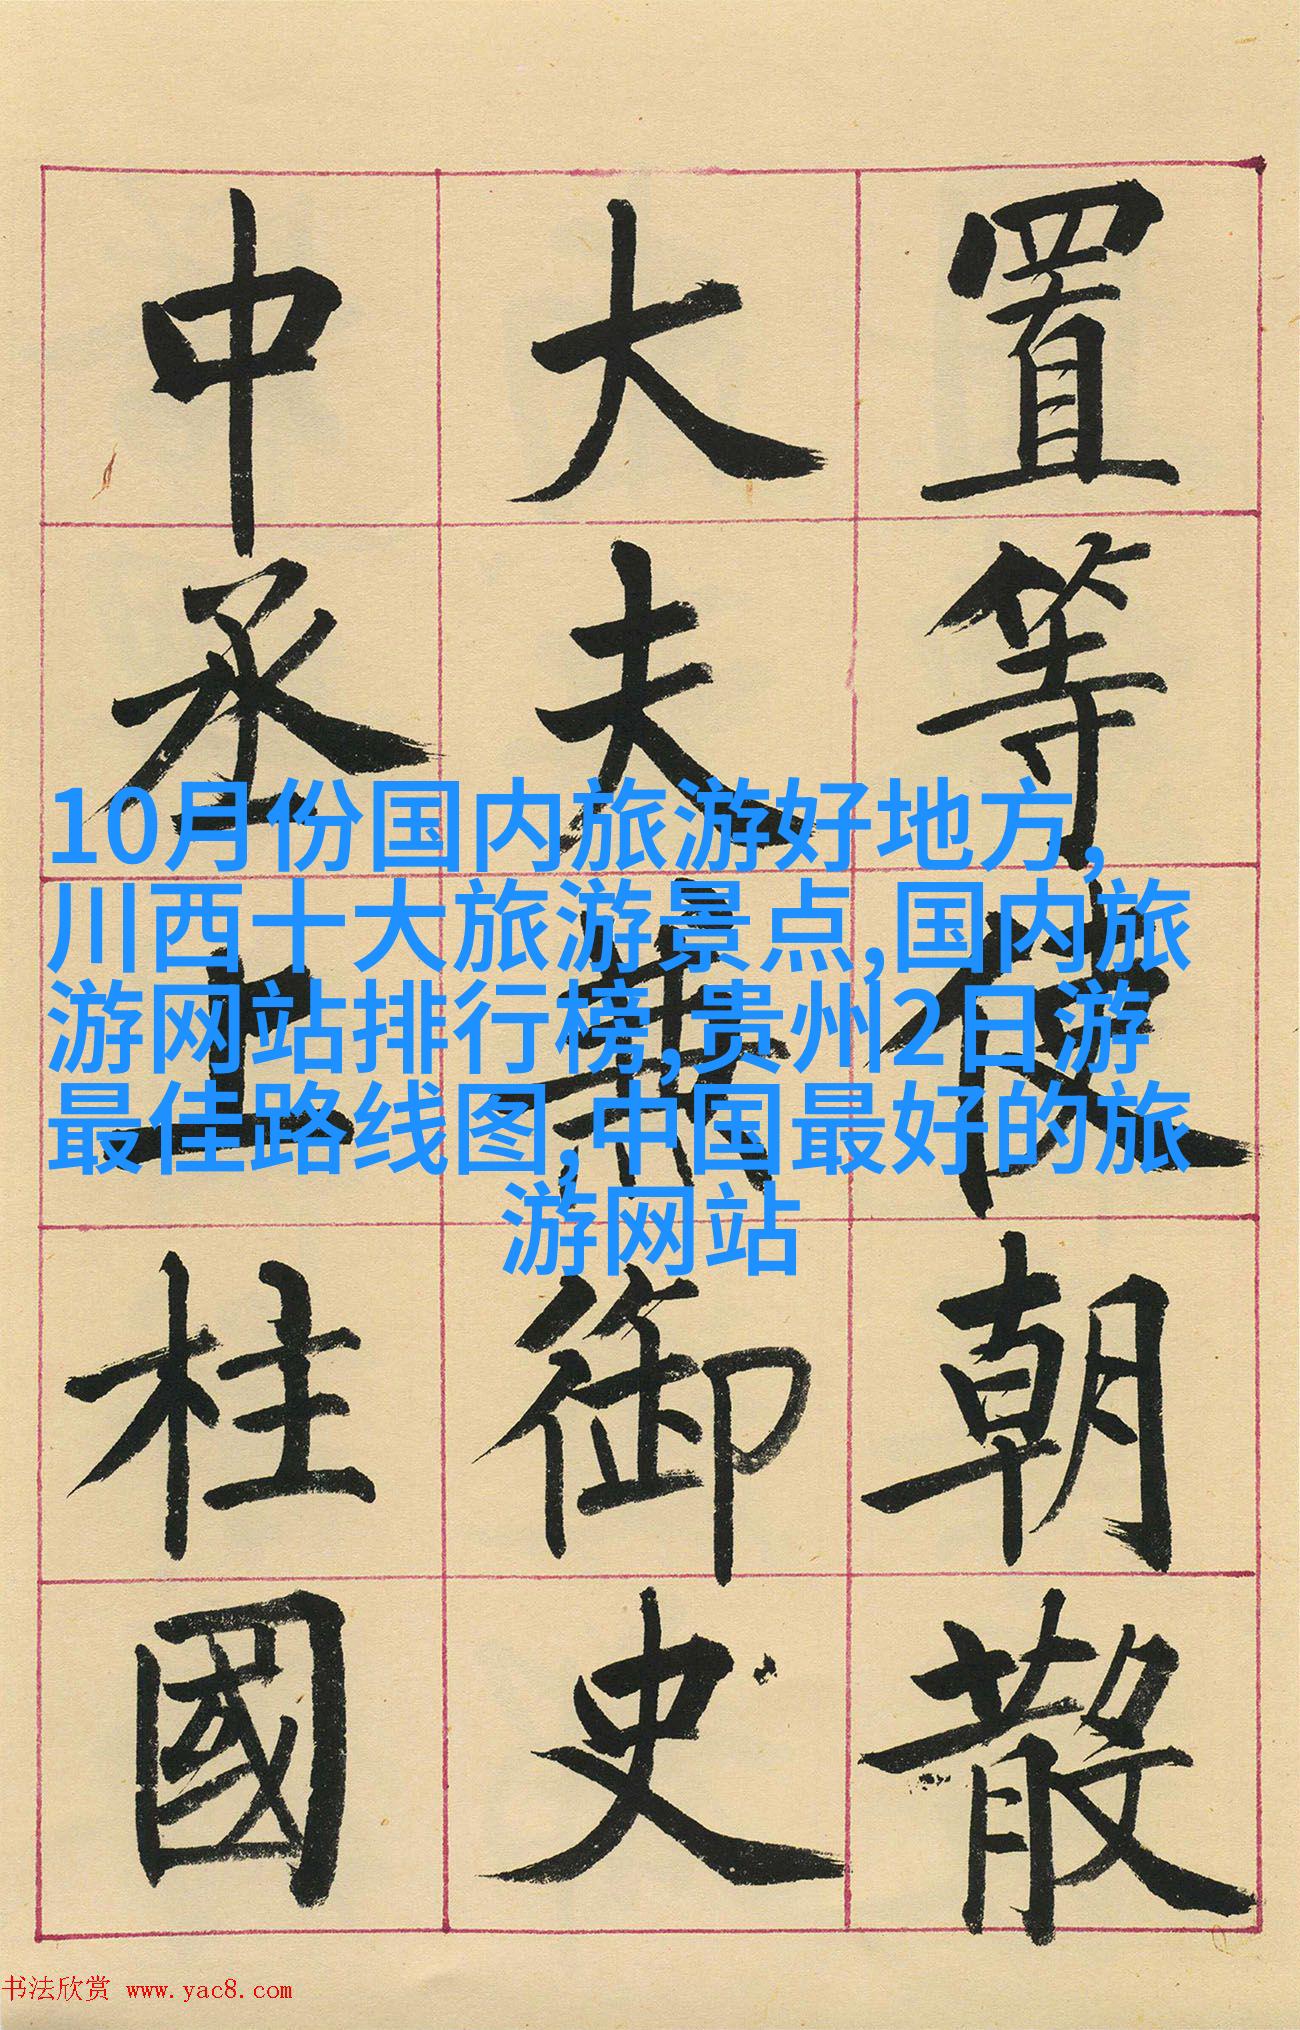 置等使朝散
大夫兼御史
中丞上柱國
10月份国内旅游好地方,
川西十大旅游景点,国内旅
游网站排行榜,贵州2日游
最佳路线图,中国最好的旅
游网站
书法欣赏 www.yac8.com